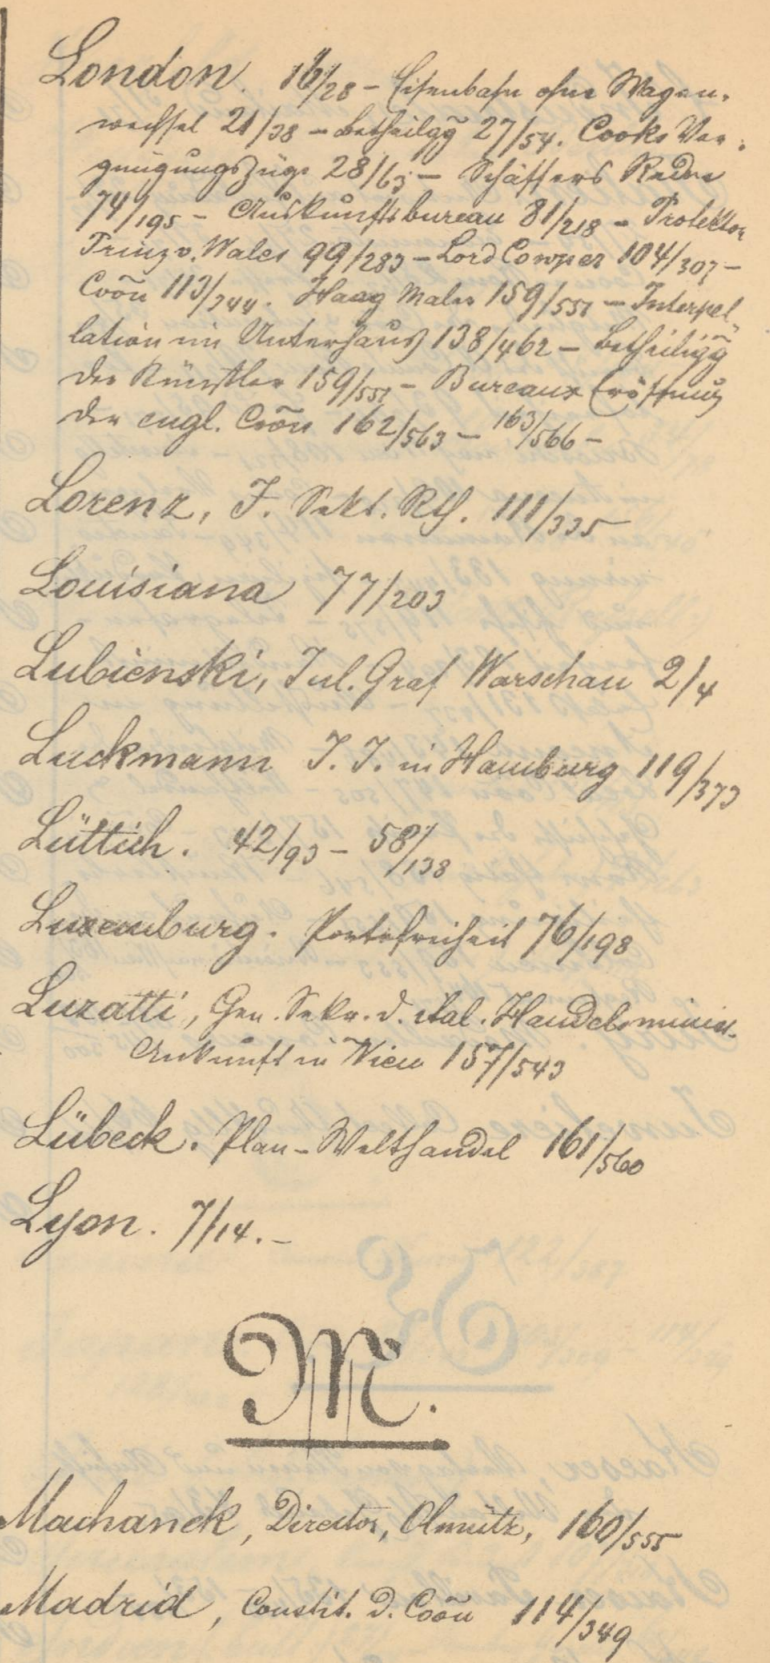 London. 16/28 – Eisenbahn ohne Wagen-
wechsel 21/38 – Betheilgg 27/54. Cooks Ver-
gnügungszüge 28/63 – Schäffers Rede
74/195 – Auskunftsbureau 81/218 – Protektor
Prinz v. Wales 99/283 – Lord Cowper 104/307 –
Coōn 113/344. Haag Maler 159/551 – Interpel-
lation im Unterhaus 138/462 – Betheiligg
der Künstler 159/551 – Bureaux Eröffnung
der engl. Coōn 162/563 – 163/566 –
Lorenz, J. Sekt. Rth. 111/335
Louisiana 77/203
Lubienski, Jul. Graf Warschau 2/4
Luckmann J. J. in Hamburg 119/373
Lüttich. 42/93 – 58/138
Luxemburg. Portofreiheit 76/198
Luzatti, Gen. Sekr. d. ital. Handelsminist.
Ankunft in Wien 157/543
Lübeck. Plan – Welthandel 161/560
Lyon. 7/14. –
M.
Machanek, Director, Olmütz, 160/555
Madrid, Constit. d. Coōn 114/349